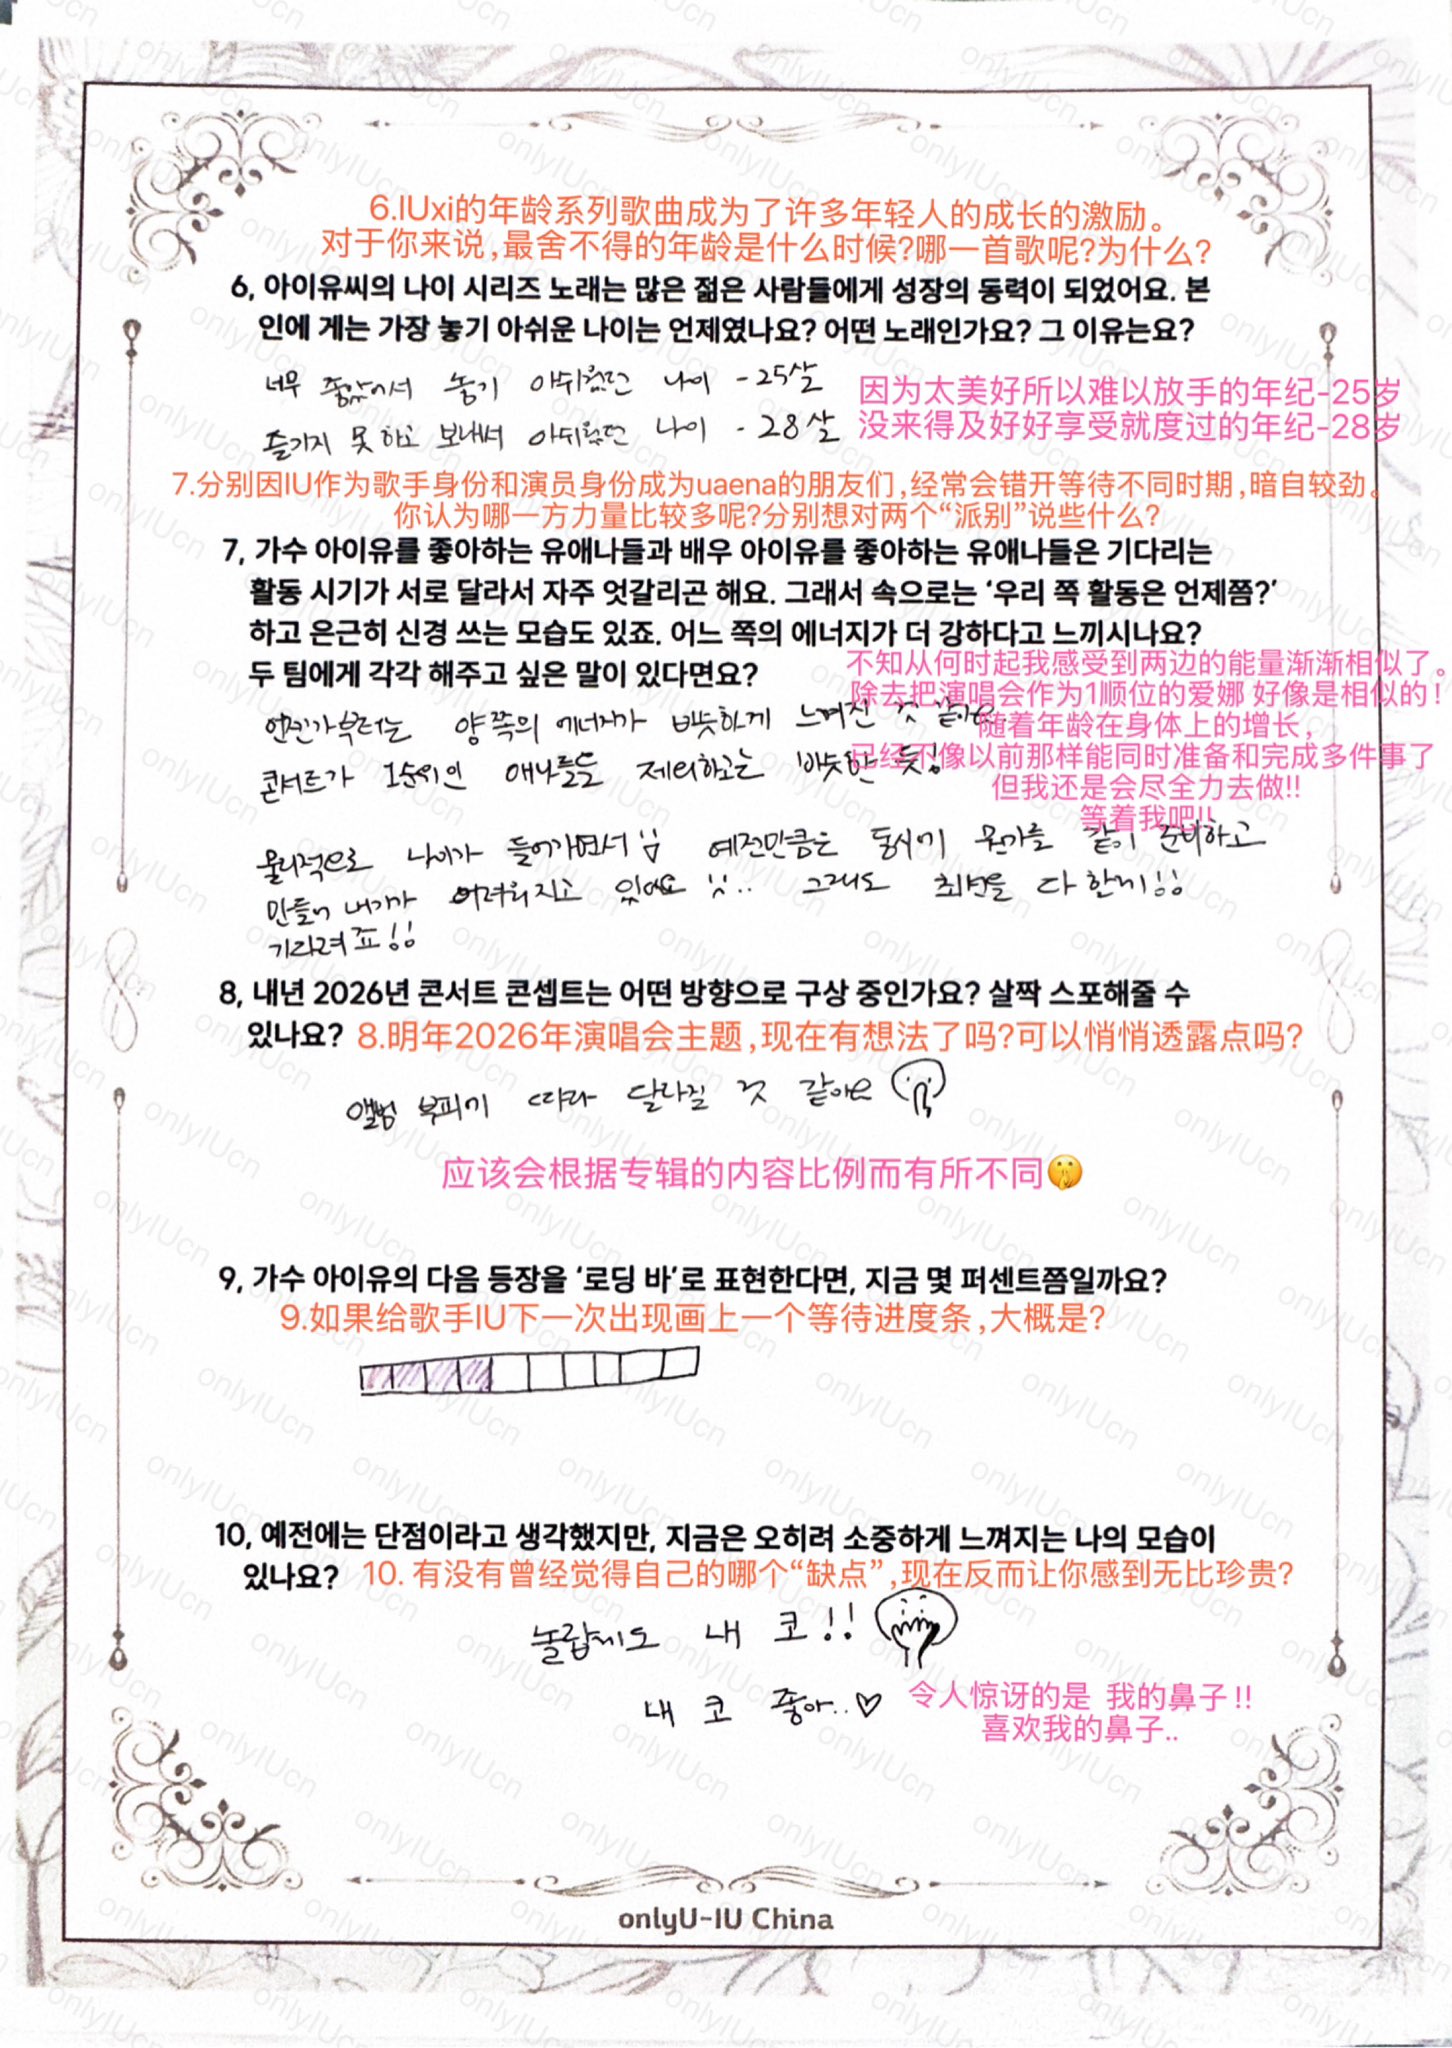 6.IUxi的年龄系列歌曲成为了许多年轻人的成长的激励。
对于你来说,最舍不得的年龄是什么时候?哪一首歌呢?为什么?
6, 아이유씨의 나이 시리즈 노래는 많은 젊은 사람들에게 성장의 동력이 되었어요. 본
인에 게는 가장 놓기 아쉬운 나이는 언제였나요? 어떤 노래인가요? 그 이유는요?
너무 좋았어서 놓기 아쉬웠던 나이 - 25살
因为太美好所以难以放手的年纪-25岁
즐기지 못 하고 보내서 아쉬웠던 나이 - 28살
没来得及好好享受就度过的年纪-28岁
7.分别因IU作为歌手身份和演员身份成为uaena的朋友们,经常会错开等待不同时期,暗自较劲。
你认为哪一方力量比较多呢?分别想对两个“派别”说些什么?
7, 가수 아이유를 좋아하는 유애나들과 배우 아이유를 좋아하는 유애나들은 기다리는
활동 시기가 서로 달라서 자주 엇갈리곤 해요. 그래서 속으로는 ‘우리 쪽 활동은 언제쯤?’
하고 은근히 신경 쓰는 모습도 있죠. 어느 쪽의 에너지가 더 강하다고 느끼시나요?
두 팀에게 각각 해주고 싶은 말이 있다면요?
不知从何时起我感受到两边的能量渐渐相似了。
除去把演唱会作为1顺位的爱娜 好像是相似的!
随着年龄在身体上的增长,
已经不像以前那样能同时准备和完成多件事了
但我还是会尽全力去做!!
等着我吧!!
언젠가부터는 양쪽의 에너지가 비슷하게 느껴진 것 같아요
콘서트가 1순위인 애나들을 제외하고는 비슷한 듯!
물리적으로 나이가 들어가면서 예전만큼은 동시에 뭔가를 같이 준비하고
만들어 내기가 어려워지고 있어요 .. 그래도 최선을 다 할게!!
기다려죠!!
8, 내년 2026년 콘서트 콘셉트는 어떤 방향으로 구상 중인가요? 살짝 스포해줄 수
있나요?
8.明年2026年演唱会主题,现在有想法了吗?可以悄悄透露点吗?
앨범 부피에 따라 달라질 것 같아요
应该会根据专辑的内容比例而有所不同🤫
9, 가수 아이유의 다음 등장을 ‘로딩 바’로 표현한다면, 지금 몇 퍼센트쯤일까요?
9.如果给歌手IU下一次出现画上一个等待进度条,大概是?
10, 예전에는 단점이라고 생각했지만, 지금은 오히려 소중하게 느껴지는 나의 모습이
있나요?
10. 有没有曾经觉得自己的哪个“缺点”,现在反而让你感到无比珍贵?
놀랍게도 내 코!!
내 코 좋아..♡
令人惊讶的是 我的鼻子!!
喜欢我的鼻子..
onlyU-IU China
onlyIUcn